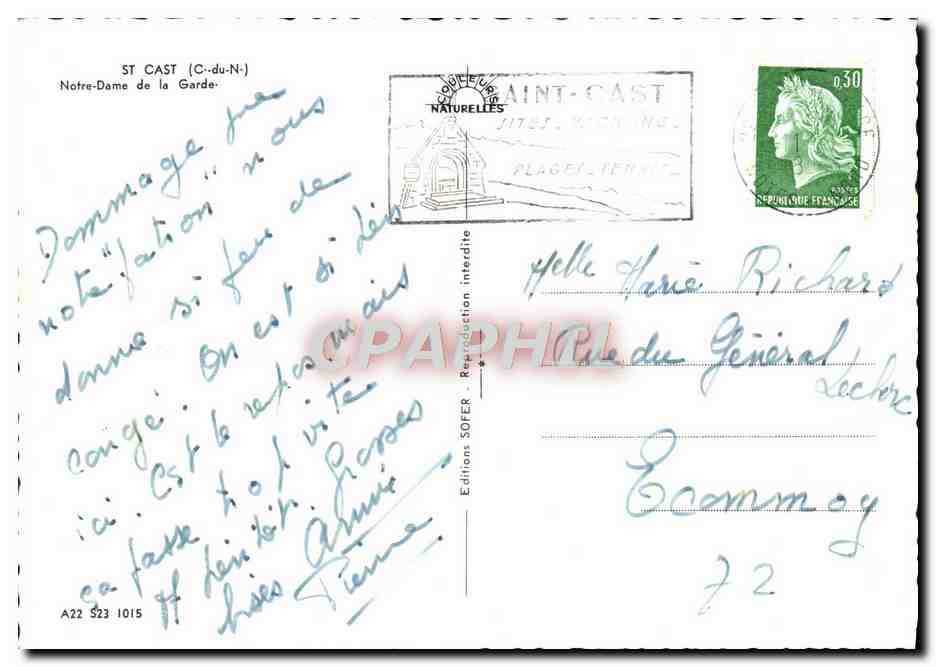 ST CAST (C.-du-N.)
Notre-Dame de la Garde.
COULEURS
NATURELLES
SAINT-CAST
SITES - YACHTING -
PLAGES - TENNIS -
0,30
POSTES
REPUBLIQUE FRANÇAISE
Dommage que
note "fation" nous
donne si peu de
congé. On est si bien
ici. C'est le repos, mais
ça passe trop vite
A bientôt. Grosses
bises
Pierre
Editions SOFER - Reproduction interdite
Melle Marie Richard
Rue du Général
Leclerc
Ecommoy
72
CPAPHIL
A22 S23 1015